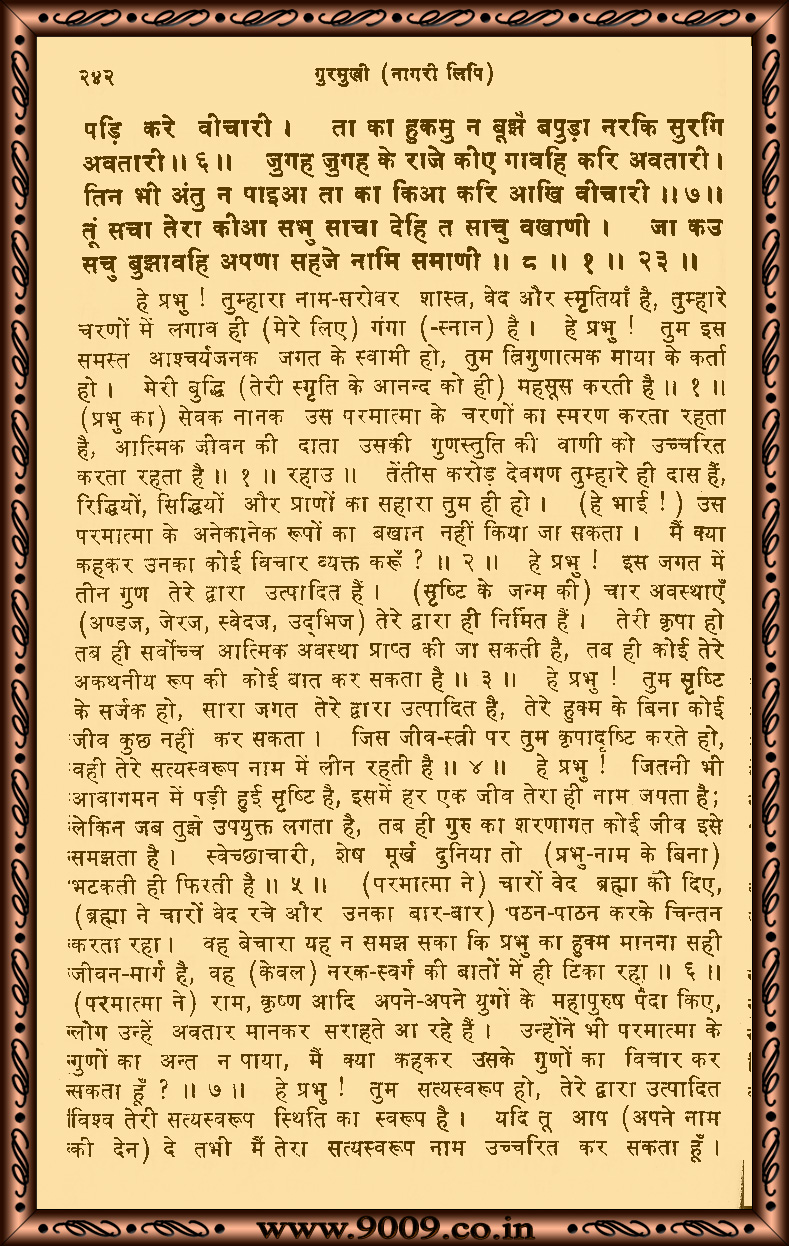 २४२ गुरमुखी (नागरी लिपि)
पड़ि करे वीचारी । ता का हुकमु न बूझै बपुड़ा नरकि सुरगि
अवतारी ॥ ६ ॥ जुगह जुगह के राजे कीए गावहि करि अवतारी ।
तिन भी अंतु न पाइआ ता का किआ करि आखि वीचारी ॥ ७ ॥
तूं सचा तेरा कीआ सभु साचा देहि त साचु वखाणी । जा कउ
सचु बुझावहि अपणा सहजे नामि समाणी ॥ ८ ॥ १ ॥ २३ ॥
हे प्रभु ! तुम्हारा नाम-सरोवर शास्त्र, वेद और स्मृतियाँ है, तुम्हारे
चरणों में लगाव ही (मेरे लिए) गंगा (-स्नान) है । हे प्रभु ! तुम इस
समस्त आश्चर्यजनक जगत के स्वामी हो, तुम त्रिगुणात्मक माया के कर्ता
हो । मेरी बुद्धि (तेरी स्मृति के आनन्द को ही) महसूस करती है ॥ १ ॥
(प्रभु का) सेवक नानक उस परमात्मा के चरणों का स्मरण करता रहता
है, आत्मिक जीवन की दाता उसकी गुणस्तुति की वाणी को उच्चरित
करता रहता है ॥ १ ॥ रहाउ ॥ तेंतीस करोड़ देवगण तुम्हारे ही दास हैं,
रिद्धियों, सिद्धियों और प्राणों का सहारा तुम ही हो । (हे भाई !) उस
परमात्मा के अनेकानेक रूपों का बखान नहीं किया जा सकता । मैं क्या
कहकर उनका कोई विचार व्यक्त करूँ ? ॥ २ ॥ हे प्रभु ! इस जगत में
तीन गुण तेरे द्वारा उत्पादित हैं । (सृष्टि के जन्म की) चार अवस्थाएँ
(अण्डज, जेरज, स्वेदज, उद्भिज) तेरे द्वारा ही निर्मित हैं । तेरी कृपा हो
तब ही सर्वोच्च आत्मिक अवस्था प्राप्त की जा सकती है, तब ही कोई तेरे
अकथनीय रूप की कोई बात कर सकता है ॥ ३ ॥ हे प्रभु ! तुम सृष्टि
के सर्जक हो, सारा जगत तेरे द्वारा उत्पादित है, तेरे हुक्म के बिना कोई
जीव कुछ नहीं कर सकता । जिस जीव-स्त्री पर तुम कृपादृष्टि करते हो,
वही तेरे सत्यस्वरूप नाम में लीन रहती है ॥ ४ ॥ हे प्रभु ! जितनी भी
आवागमन में पड़ी हुई सृष्टि है, इसमें हर एक जीव तेरा ही नाम जपता है;
लेकिन जब तुझे उपयुक्त लगता है, तब ही गुरु का शरणागत कोई जीव इसे
समझता है । स्वेच्छाचारी, शेष मूर्ख दुनिया तो (प्रभु-नाम के बिना)
भटकती ही फिरती है ॥ ५ ॥ (परमात्मा ने) चारों वेद ब्रह्मा को दिए,
(ब्रह्मा ने चारों वेद रचे और उनका बार-बार) पठन-पाठन करके चिन्तन
करता रहा । वह बेचारा यह न समझ सका कि प्रभु का हुक्म मानना सही
जीवन-मार्ग है, वह (केवल) नरक-स्वर्ग की बातों में ही टिका रहा ॥ ६ ॥
(परमात्मा ने) राम, कृष्ण आदि अपने-अपने युगों के महापुरुष पैदा किए,
लोग उन्हें अवतार मानकर सराहते आ रहे हैं । उन्होंने भी परमात्मा के
गुणों का अन्त न पाया, मैं क्या कहकर उसके गुणों का विचार कर
सकता हूँ ? ॥ ७ ॥ हे प्रभु ! तुम सत्यस्वरूप हो, तेरे द्वारा उत्पादित
विश्व तेरी सत्यस्वरूप स्थिति का स्वरूप है । यदि तू आप (अपने नाम
की देन) दे तभी मैं तेरा सत्यस्वरूप नाम उच्चरित कर सकता हूँ ।
www.9009.co.in